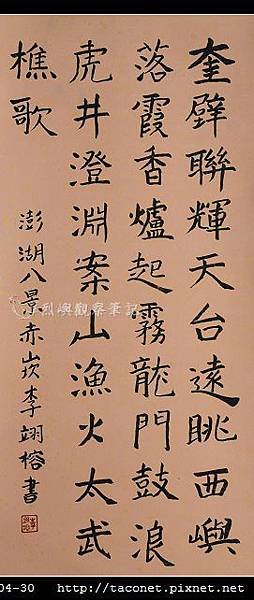 奎壁聯輝天台遠眺西嶼
落霞香爐起霧龍門鼓浪
虎井澄淵案山漁火太武
樵歌
澎湖八景赤崁李翊榕書
烈嶼觀察筆記
04-30 http://taconet.pixnet.net